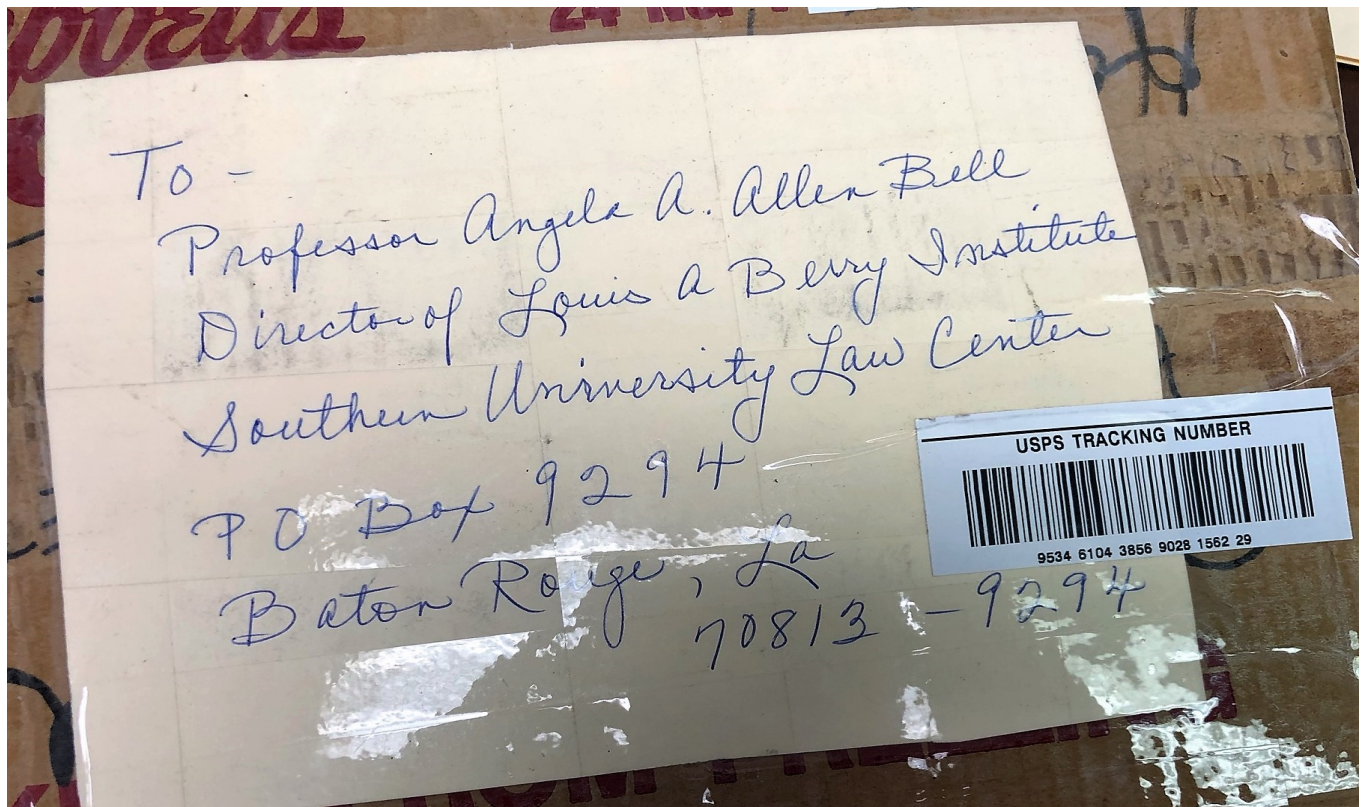 To -
Professor Angela A. Allen Bell
Director of Louis A Berry Institute
Southern University Law Center
P O Box 9294
Baton Rouge, La
70813 - 9294
USPS TRACKING NUMBER
9534 6104 3856 9028 1562 29